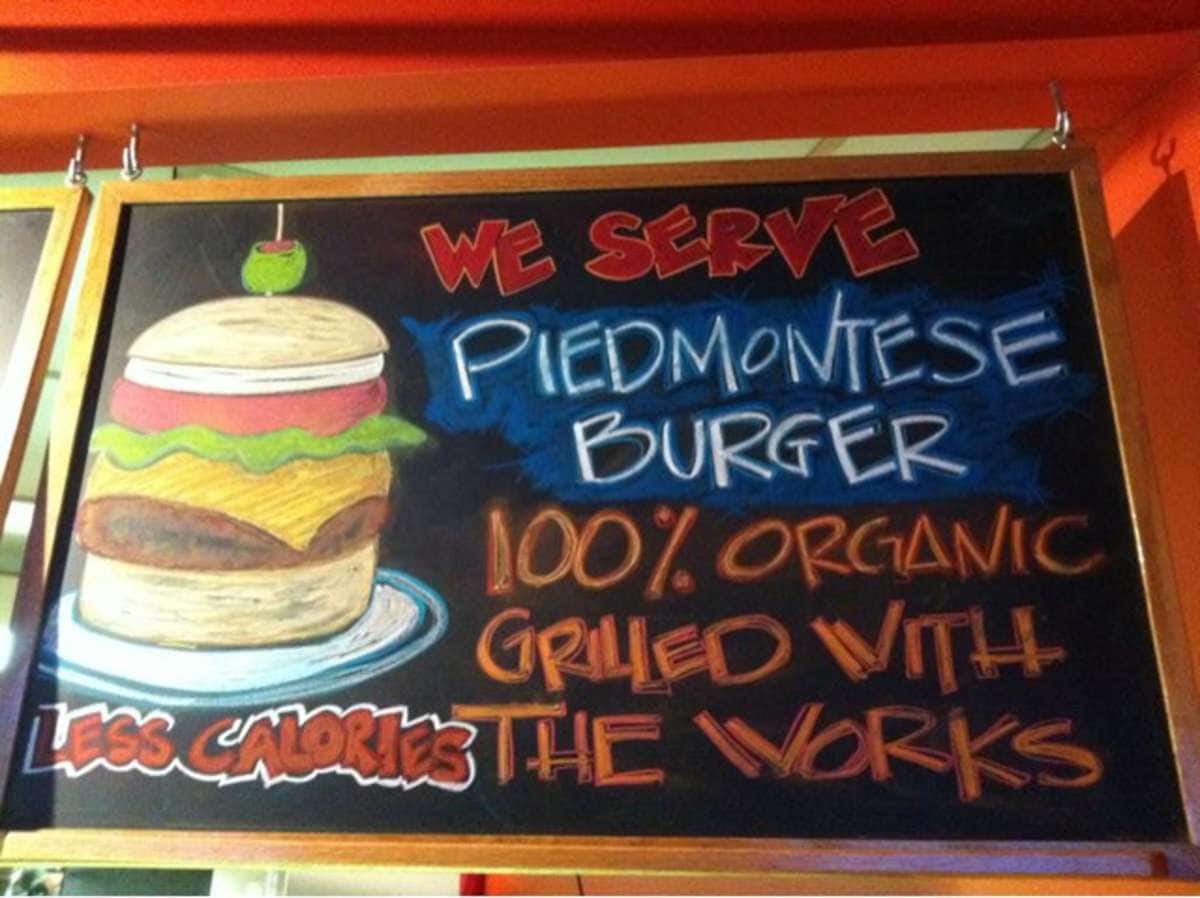 WE SERVE
PIEDMONTESE
BURGER
100% ORGANIC
GRILLED WITH
THE WORKS
LESS CALORIES